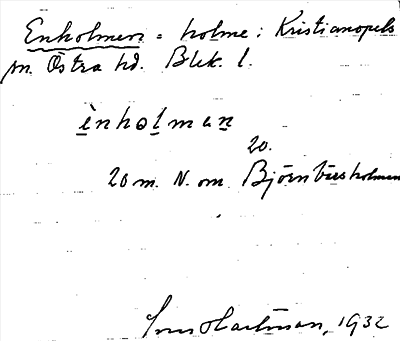 Enholmen = holme: Kristianopels
sn. Östra hd. Blek. l.
ènholman
20.
20 m. N. om Björnbärsholmen
Hartman, 1932